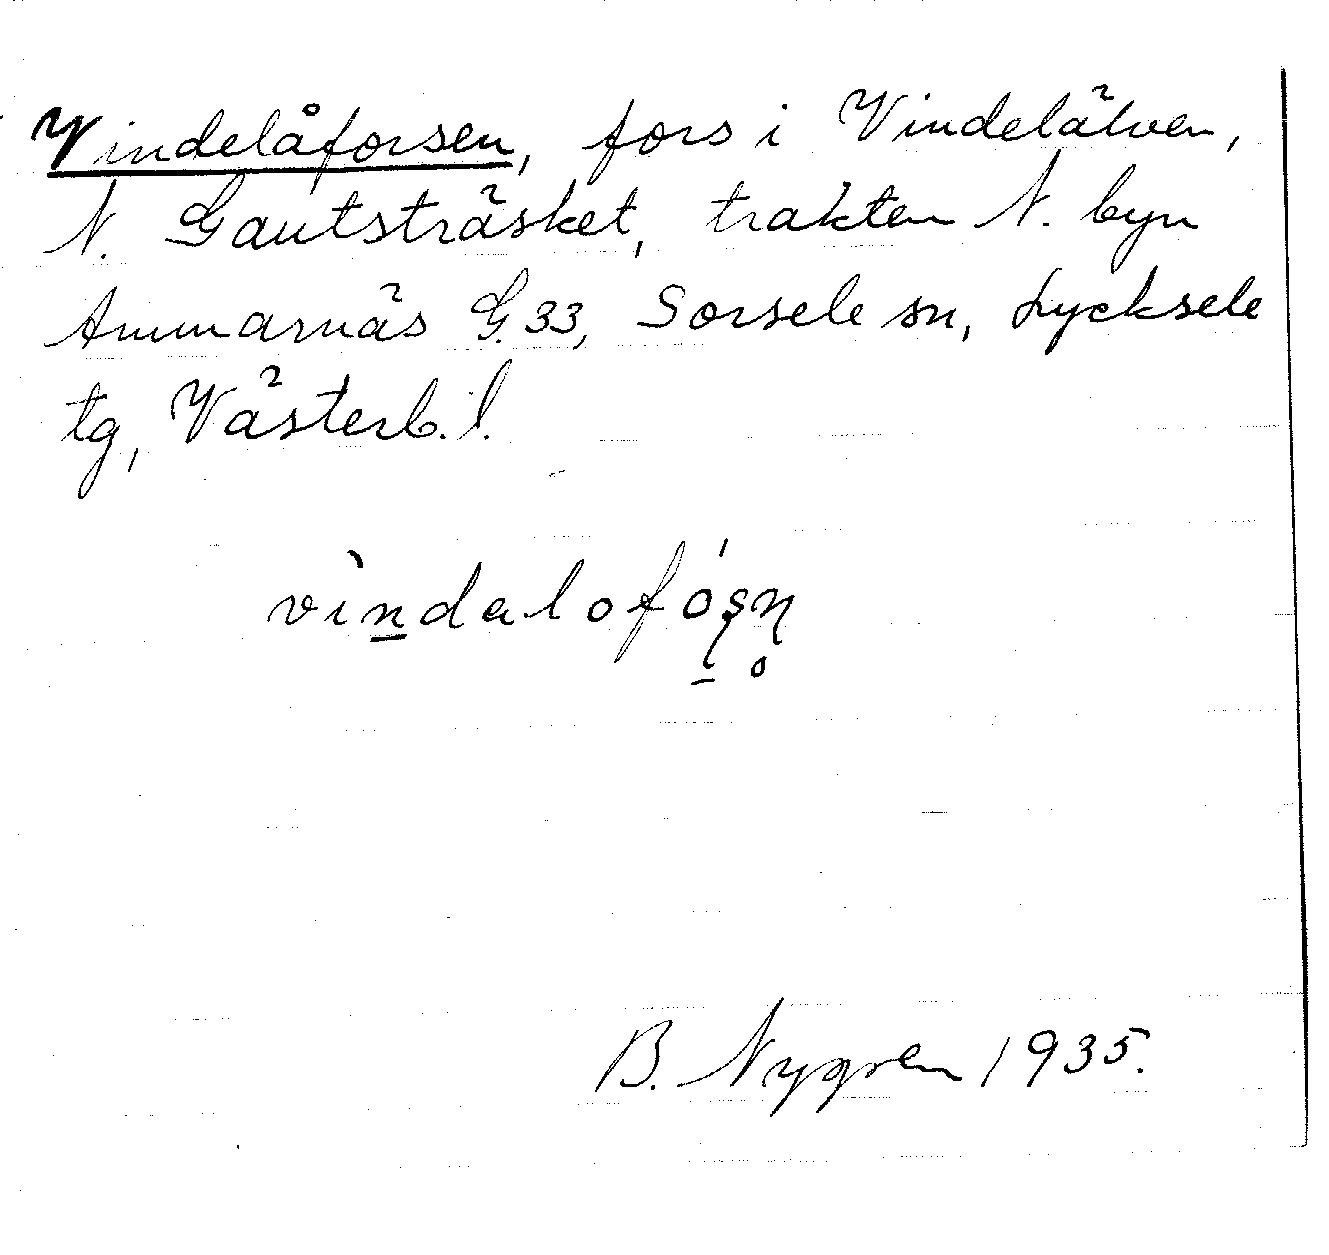 Vindelåforsen, fors i Vindelälven,
N. Gautsträsket, trakten N. byn
Ammarnäs G.33, Sorsele sn, Lycksele
tg, Västerb. l.
vìn̲dalofó̱ʂɳ̥
B. Nygren 1935.